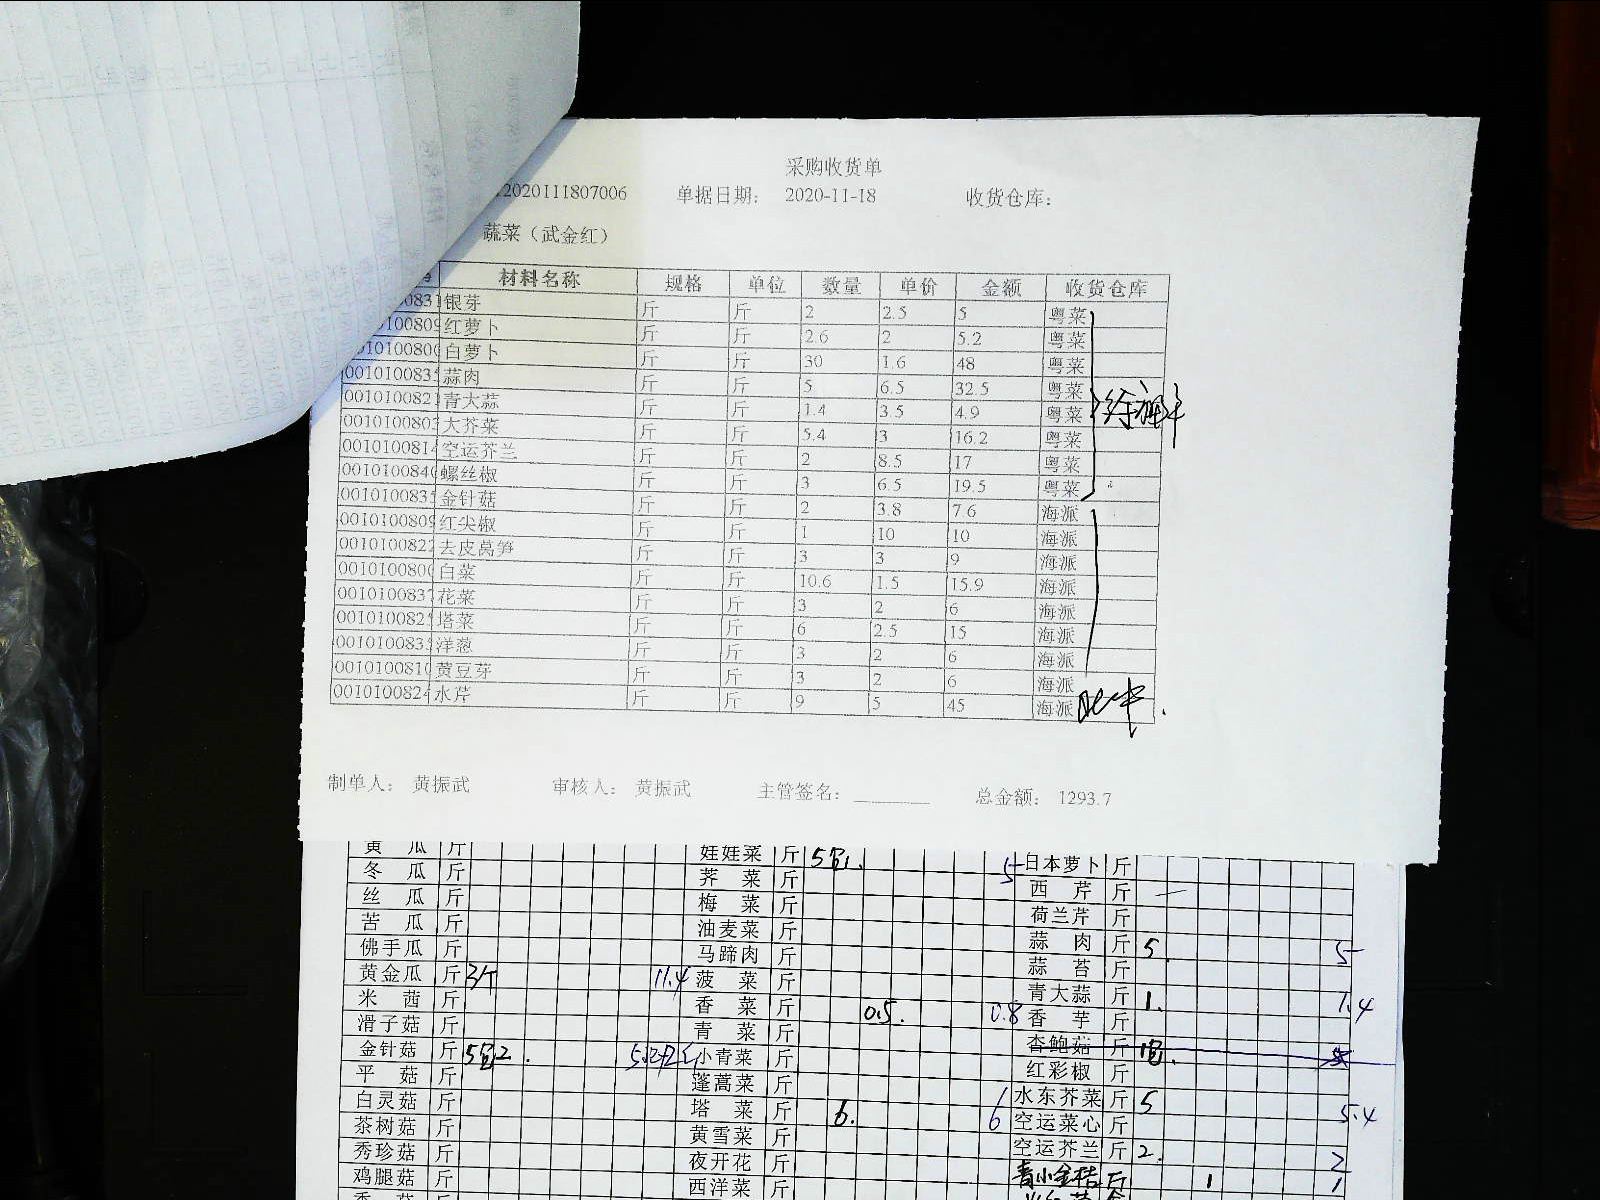 采购收货单
2020111807006 单据日期： 2020-11-18 收货仓库：
蔬菜（武金红）
材料名称 规格 单位 数量 单价 金额 收货仓库
银芽 斤 斤 2 2.5 5 粤菜
红萝卜 斤 斤 2.6 2 5.2 粤菜
白萝卜 斤 斤 30 1.6 48 粤菜
001010083 蒜肉 斤 斤 5 6.5 32.5 粤菜
001010082 青大蒜 斤 斤 1.4 3.5 4.9 粤菜
001010080 大芥菜 斤 斤 5.4 3 16.2 粤菜
001010081 空运芥兰 斤 斤 2 8.5 17 粤菜
001010084 螺丝椒 斤 斤 3 6.5 19.5 粤菜
001010083 金针菇 斤 斤 2 3.8 7.6 海派
001010080 红尖椒 斤 斤 1 10 10 海派
001010082 去皮莴笋 斤 斤 3 3 9 海派
001010080 白菜 斤 斤 10.6 1.5 15.9 海派
001010083 花菜 斤 斤 3 2 6 海派
001010082 塔菜 斤 斤 6 2.5 15 海派
001010083 洋葱 斤 斤 3 2 6 海派
001010081 黄豆芽 斤 斤 3 2 6 海派
001010082 水芹 斤 斤 9 5 45 海派
制单人： 黄振武 审核人： 黄振武 主管签名： 总金额： 1293.7
黄 瓜 斤 娃娃菜 斤 5包. 5 日本萝卜 斤
冬 瓜 斤 荠 菜 斤 西 芹 斤
丝 瓜 斤 梅 菜 斤 荷兰芹 斤
苦 瓜 斤 油麦菜 斤 蒜 肉 斤 5 5
佛手瓜 斤 马蹄肉 斤 蒜 苔 斤
黄金瓜 斤 3个 11.4 菠 菜 斤 青大蒜 斤 1. 1.4
米 茜 斤 香 菜 斤 0.5. 0.8 香 芋 斤
滑子菇 斤 青 菜 斤 杏鲍菇 斤
金针菇 斤 5包2. 小青菜 斤 红彩椒 斤
平 菇 斤 蓬蒿菜 斤 水东芥菜 斤 5 5.4
白灵菇 斤 塔 菜 斤 6. 6 空运菜心 斤
茶树菇 斤 黄雪菜 斤 空运芥兰 斤 2. 2
秀珍菇 斤 夜开花 斤 青小金桔 斤 1 1
鸡腿菇 斤 西洋菜 斤